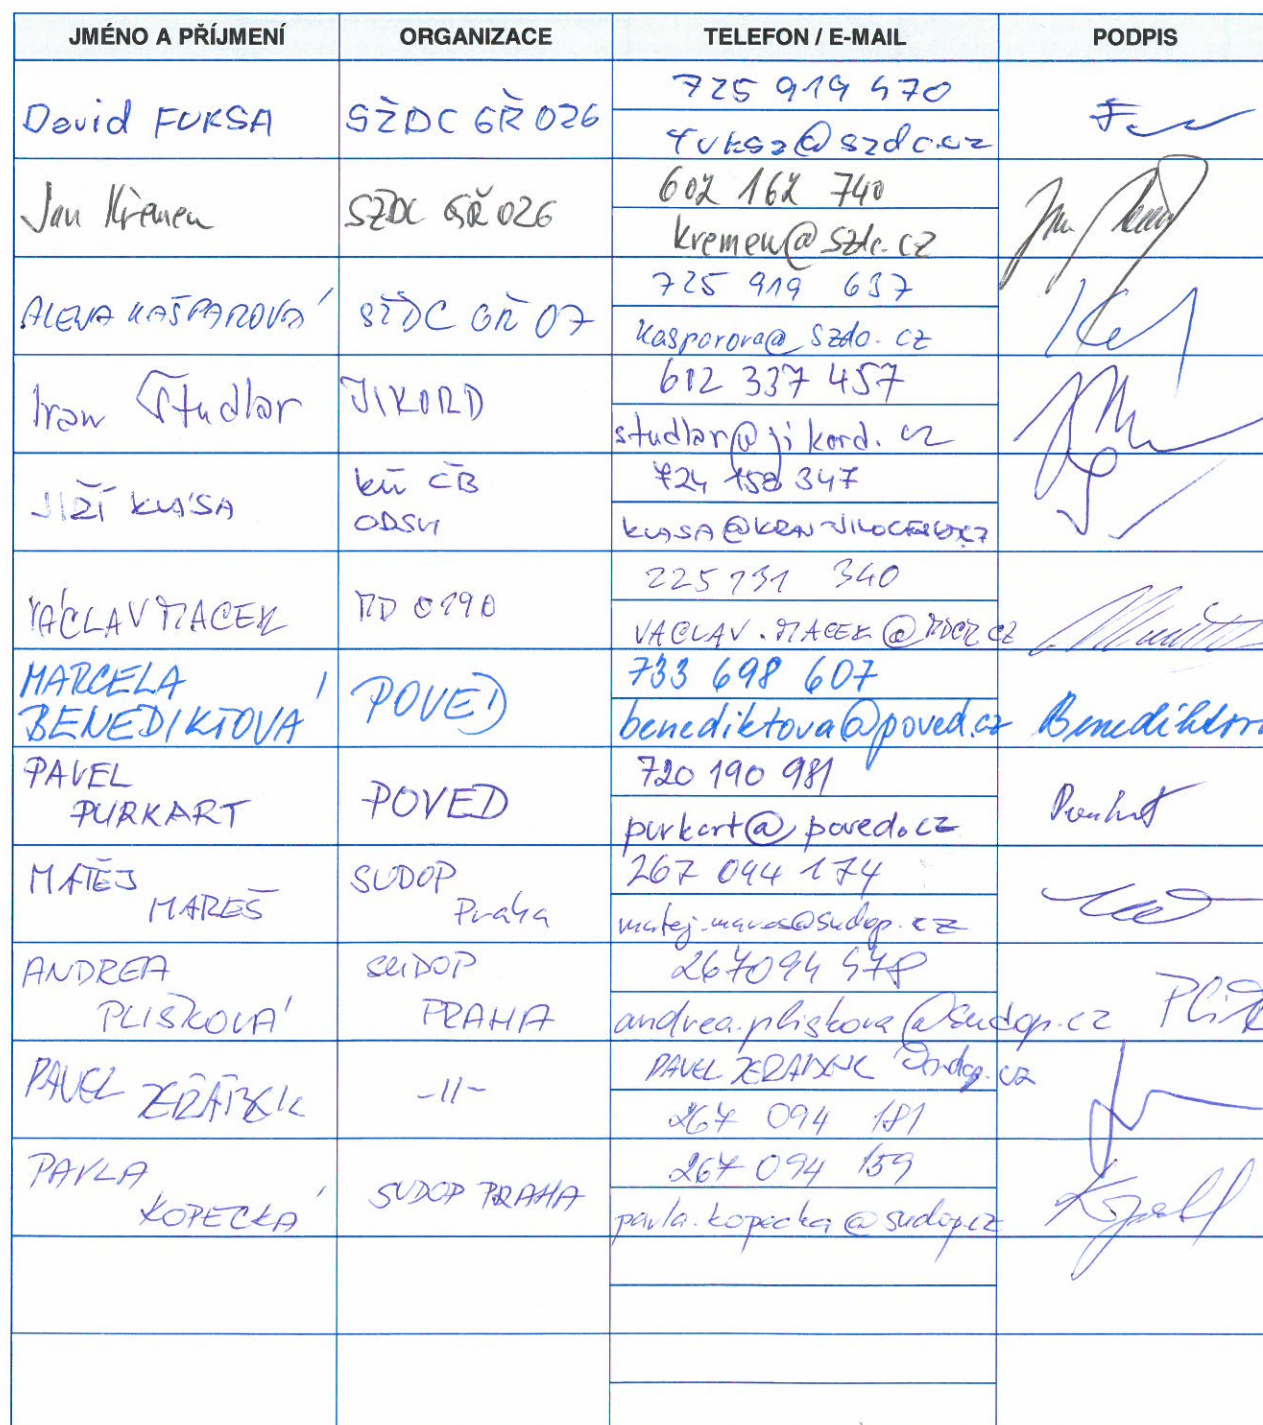 JMÉNO A PŘÍJMENÍ ORGANIZACE TELEFON / E-MAIL PODPIS
David FUKSA SŽDC GŘ O26 725 919 470
fuksa@szdc.cz
Jan Křemen SŽDC GŘ O26 602 162 740
kremen@szdc.cz
ALENA KAŠPAROVÁ SŽDC GŘ O7 725 919 637
kasparova@szdc.cz
Ivan Študlar JIKORD 612 337 457
studlar@jikord.cz
JIŘÍ KLÁSA KÚ ČB 724 158 347
ODSH
VÁCLAV MACEK MD O190 225 131 340
VACLAV.MACEK@MDCR.CZ
MARCELA
BENEDIKTOVÁ POVED 733 698 607
benediktova@poved.cz Benediktova
PAVEL
PURKART POVED 720 190 981
purkart@poved.cz Purkart
MATĚJ SUDOP 267 094 174
MAREŠ Praha matej.mares@sudop.cz
ANDREA SUDOP 267094 478
PLIŠKOVÁ PRAHA andrea.pliskova@sudop.cz
PAVEL -II- PAVEL @sudop.cz
267 094 181
PAVLA 267 094 159
KOPECKÁ SUDOP PRAHA pavla.kopecka@sudop.cz